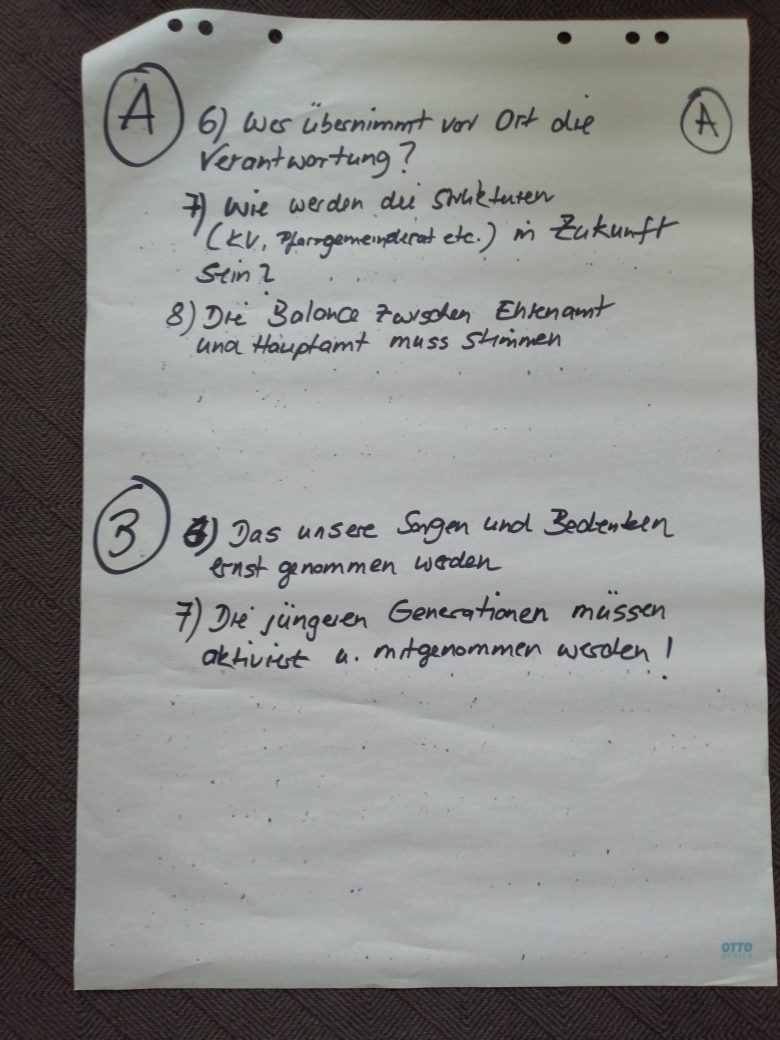 A
A
6) Wer übernimmt vor Ort die
Verantwortung?
7) Wie werden die Strukturen
(KV, Pfarrgemeinderat etc.) in Zukunft
sein?
8) Die Balance zwischen Ehrenamt
und Hauptamt muss stimmen
B
6) Das unsere Sorgen und Bedenken
ernst genommen werden
7) Die jüngeren Generationen müssen
aktiviert u. mitgenommen werden!
OTTO
OFFICE